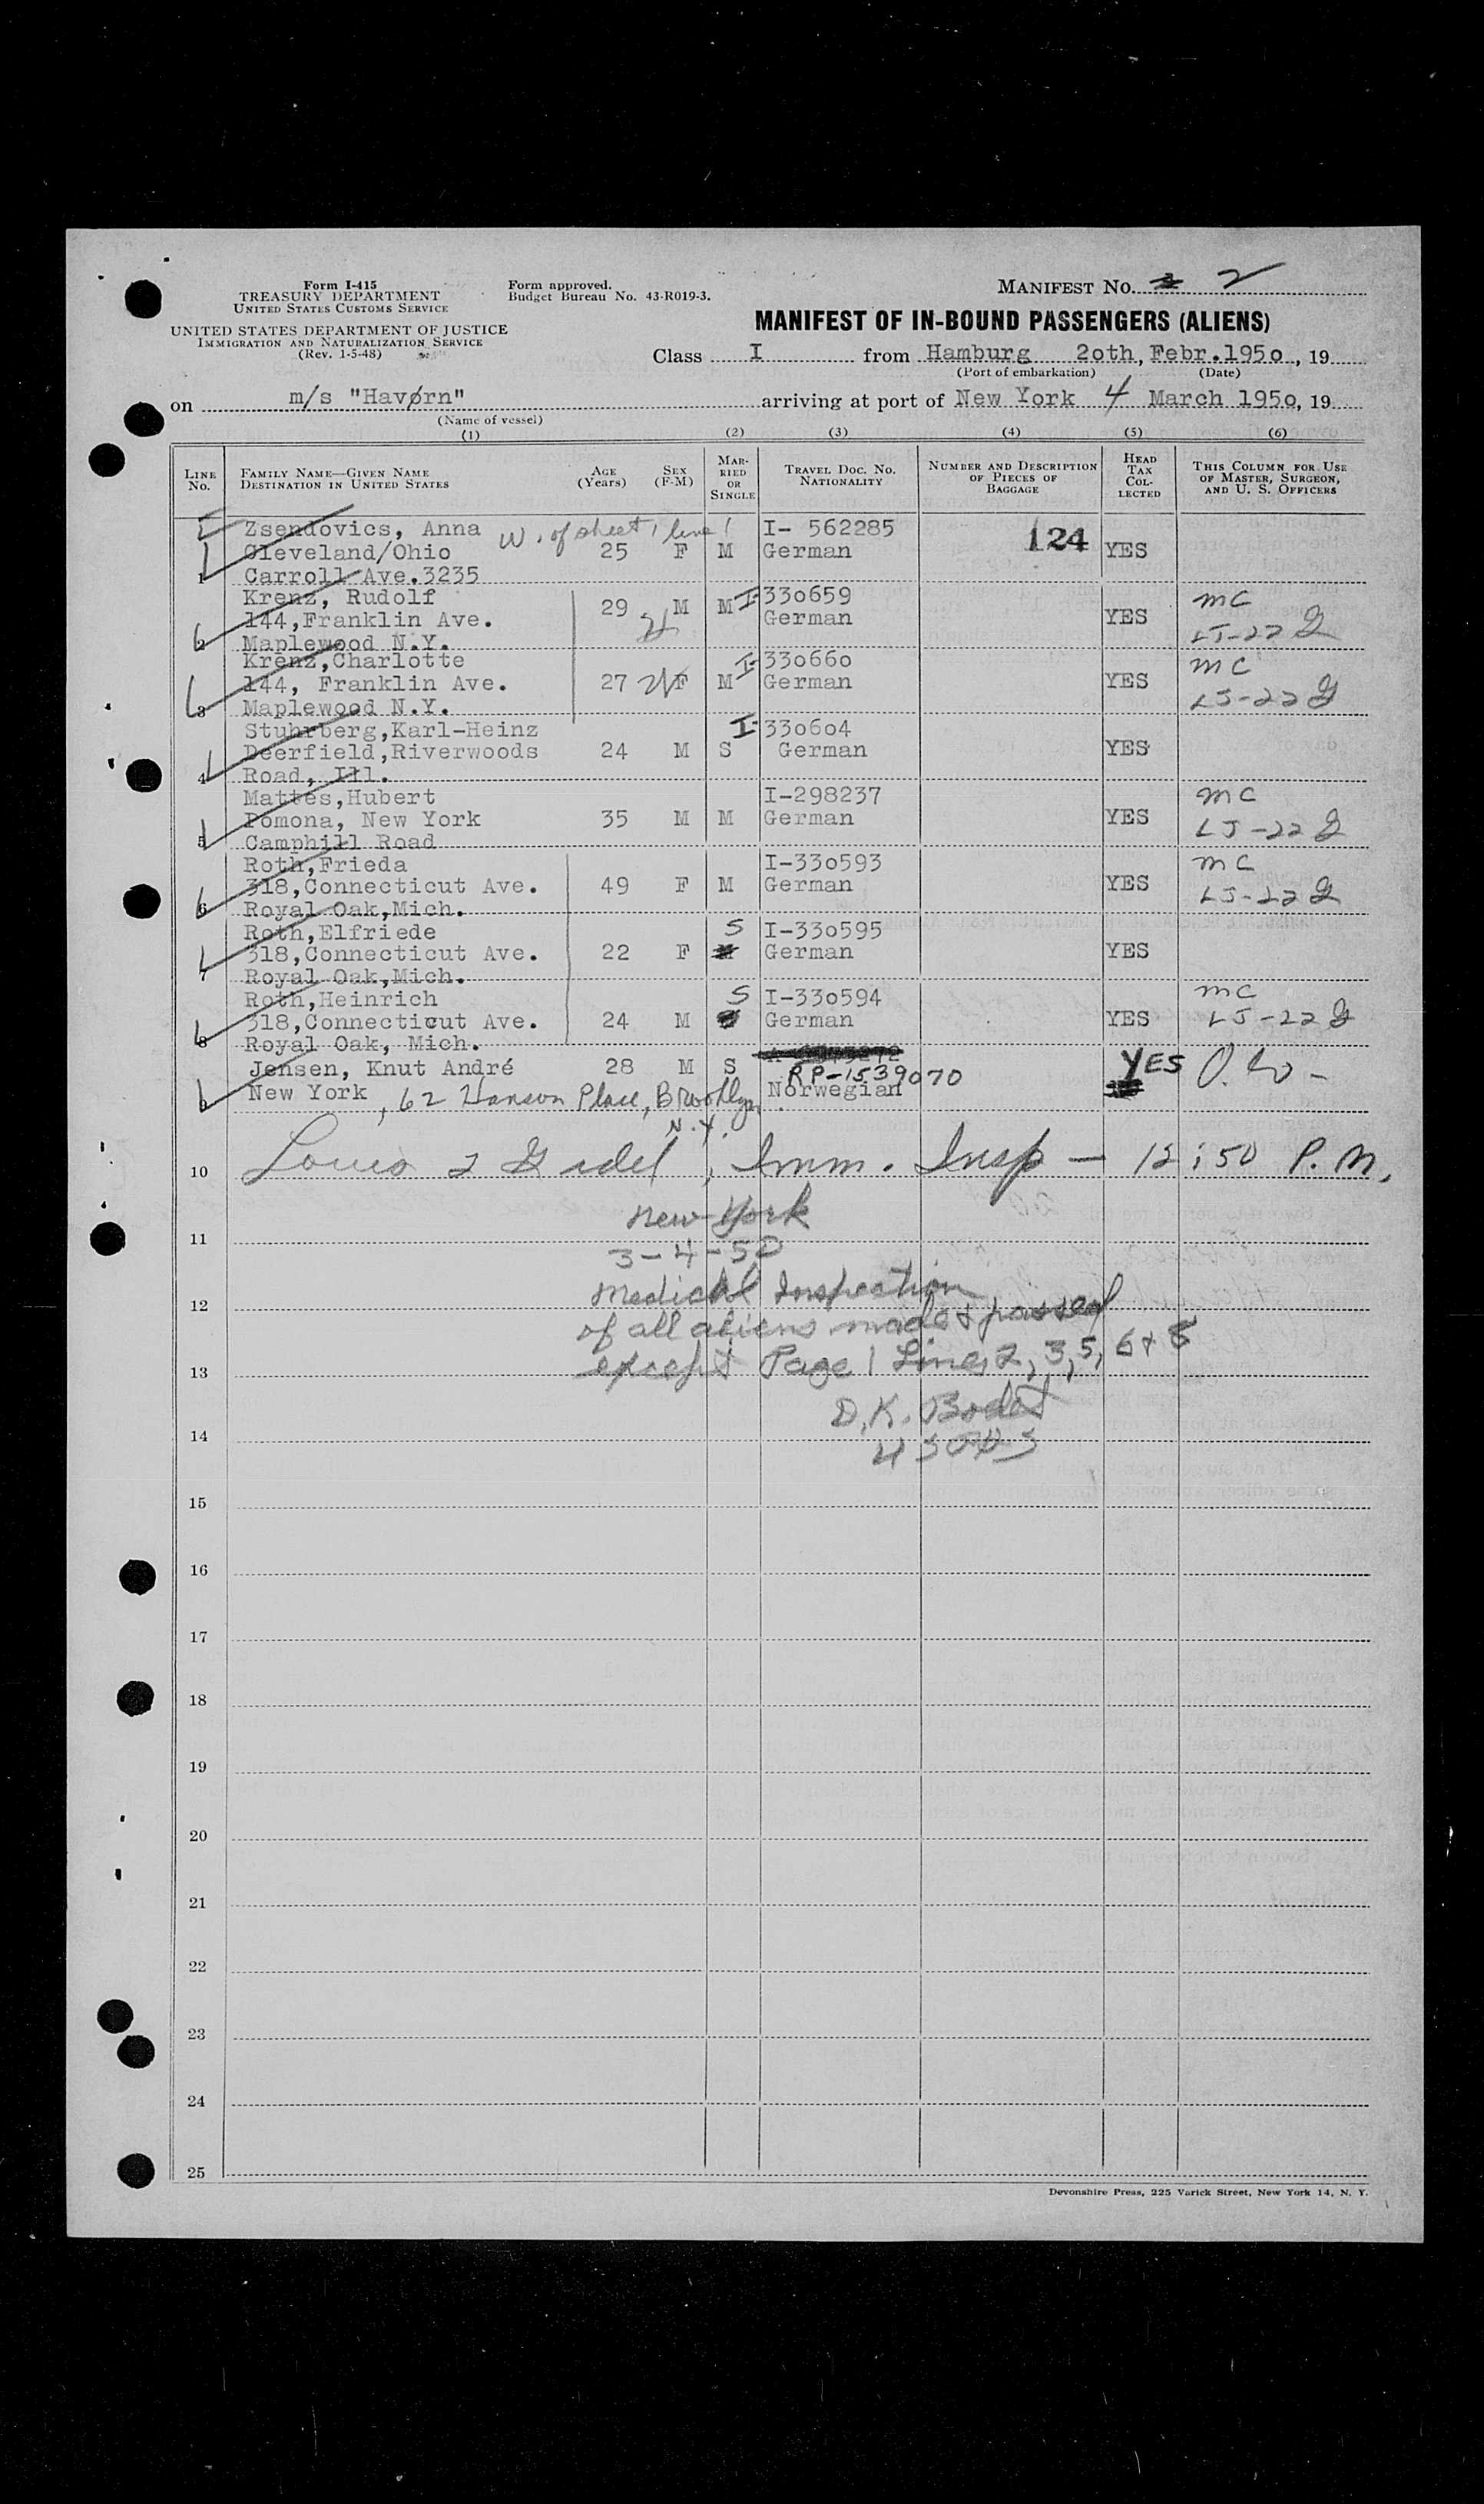 Form I-415
TREASURY DEPARTMENT
UNITED STATES CUSTOMS SERVICE
UNITED STATES DEPARTMENT OF JUSTICE
IMMIGRATION AND NATURALIZATION SERVICE
(Rev. 1-5-48)
Form approved.
Budget Bureau No. 43-R019-3.
MANIFEST NO. 2
MANIFEST OF IN-BOUND PASSENGERS (ALIENS)
Class I from Hamburg 2oth, Febr.195o, 19
(Port of embarkation) (Date)
on m/s "Havørn" arriving at port of New York 4 March 195o, 19
(Name of vessel)
(1) (2) (3) (4) (5) (6)
LINE NO. FAMILY NAME—GIVEN NAME DESTINATION IN UNITED STATES AGE (Years) SEX (F-M) MARRIED OR SINGLE TRAVEL DOC. NO. NATIONALITY NUMBER AND DESCRIPTION OF PIECES OF BAGGAGE HEAD TAX COLLECTED THIS COLUMN FOR USE OF MASTER, SURGEON, AND U. S. OFFICERS
Zsendovics, Anna W. of sheet 1 line 1 I- 562285 124
Cleveland/Ohio 25 F M German YES
1 Carroll Ave.3235
Krenz, Rudolf 29 M M I-33o659 MC
144,Franklin Ave. German YES
2 Maplewood N.Y. LJ-22
Krenz,Charlotte I-33o66o MC
144, Franklin Ave. 27 F M German YES
3 Maplewood N.Y. LJ-22
Stuhrberg,Karl-Heinz I-33o6o4
Deerfield,Riverwoods 24 M S German YES
4 Road, Ill.
Mattes,Hubert I-298237 MC
Pomona, New York 35 M M German YES
5 Camphill Road LJ-22
Roth,Frieda I-33o593 MC
318,Connecticut Ave. 49 F M German YES
6 Royal Oak,Mich. LJ-22
Roth,Elfriede S I-33o595
318,Connecticut Ave. 22 F German YES
7 Royal Oak,Mich.
Roth,Heinrich S I-33o594 MC
318,Connecticut Ave. 24 M German YES LJ-22
8 Royal Oak, Mich.
Jensen, Knut André 28 M S RP-1539070 YES
New York, 62 Hanson Place, Brooklyn N.Y. Norwegian
10 Imm. Insp - 12:50 P.M.
New York
11
3-4-50
Medical Inspection
12
of all aliens made & passed
13 except Page 1 Lines 2, 3, 5, 6 + 8
D.K.
14
15
16
17
18
19
20
21
22
23
24
25
Devonshire Press, 225 Varick Street, New York 14, N. Y.